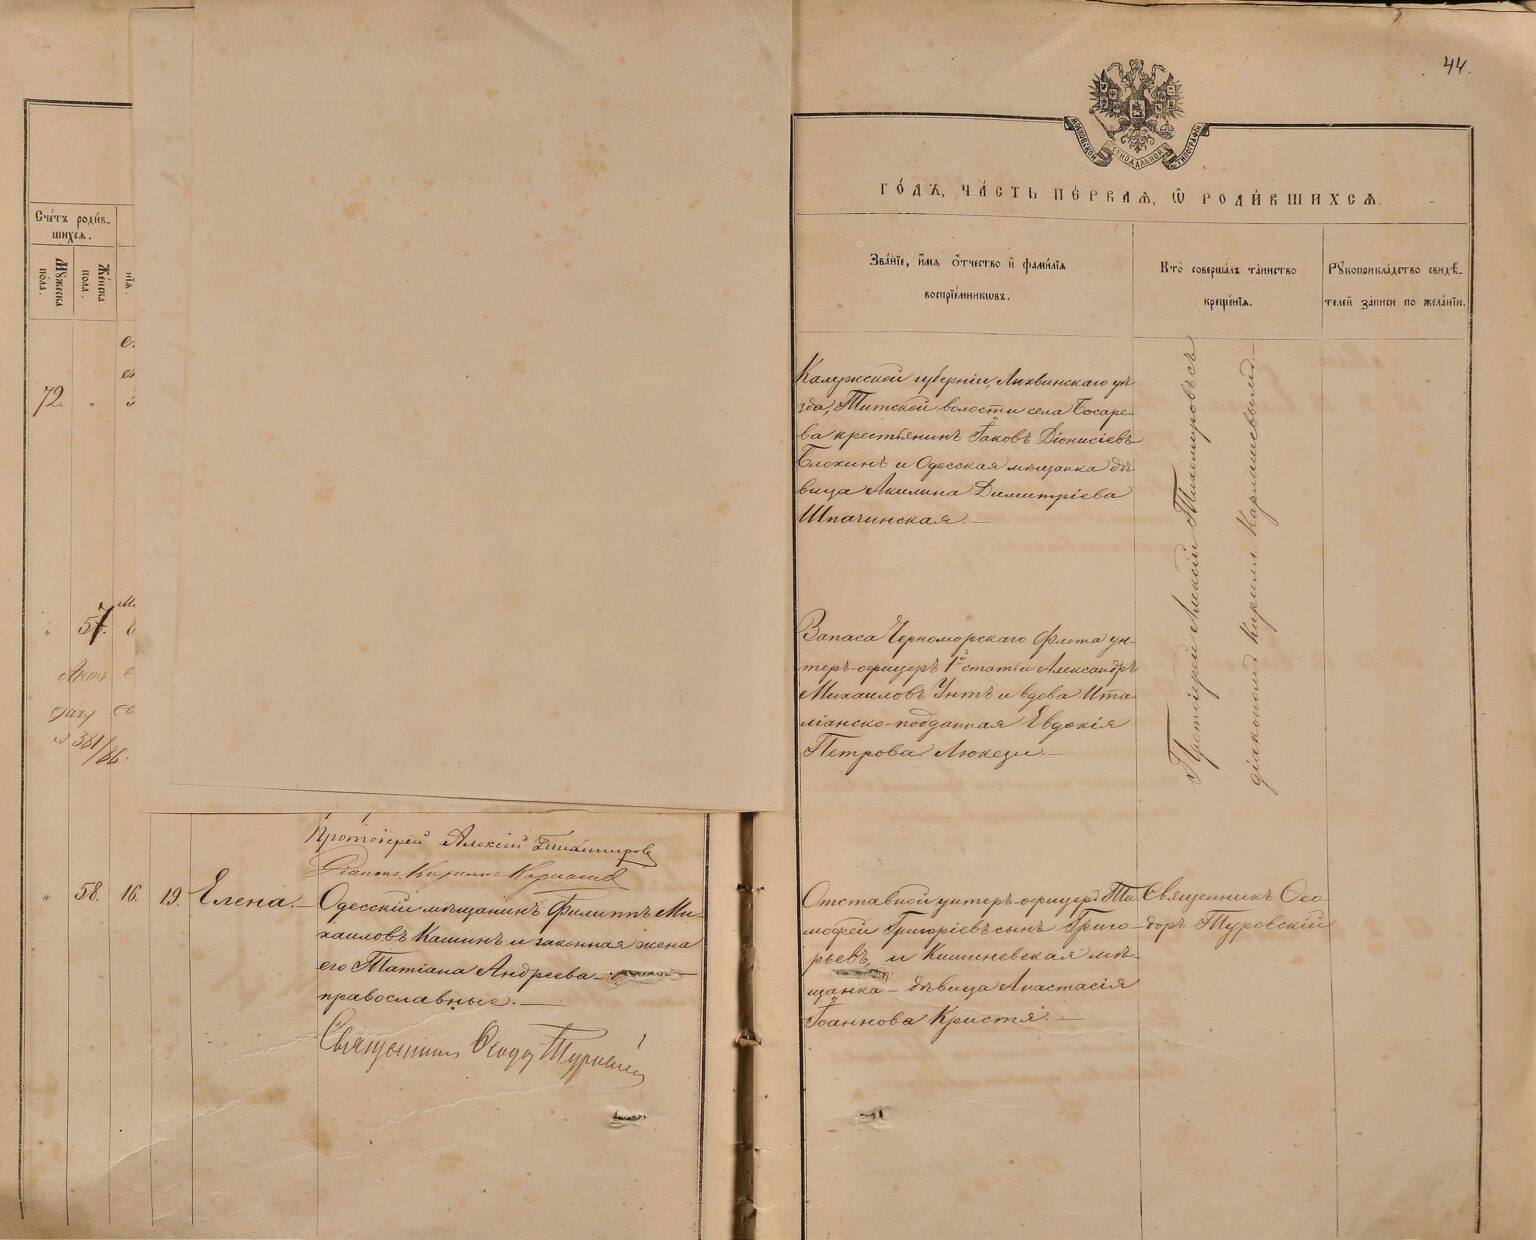 44.
МОСКОВСКОЙ СѴНОДАЛЬНОЙ ТИПОГРАФІИ
ГО́ДЪ, ЧА́СТЬ ПЕ́РВАЯ, Ѡ҆ РОДИ́ВШИХСЯ.
Сче́тъ роди́в-
шихся.
Мꙋ́жеска
по́ла.
Же́нска
пола.
нія.
Зва́нїе, и҆́мя ѻ҆́тчество и҆ фами́лїя
воспрїе́мникѡвъ.
Кто̀ соверша́лъ та́инство
креще́нїя.
Рꙋкоприкла́дство свидѣ́-
телей за́писи по жела́нїю.
72. "
Калужской губерніи, Лихвинскаго уѣ-
зда, Титской волости села Босаре-
ва крестьянинъ Іаковъ Діонисіевъ
Блохинъ и Одесская мѣщанка дѣ-
вица Акилина Димитріева
Шпачинская.—
Протоіерей Алексій Тихомировъ съ
діакономъ Кирилл. Карташевымъ.—
" 57.
Актъ
381/86.
Запаса Черноморскаго флота ун-
теръ-офицеръ 1й статьи Александръ
Михаиловъ Унтъ и вдова Ита-
ліанско-подданная Евдокія
Петрова Люкези.—
Протоіерей Алексій Тихомировъ
Діаконъ Кириллъ
" 58. 16. 19. Елена.—
Одесскій мѣщанинъ Филиппъ Ми-
хаиловъ Кашинъ и законная жена
его Татіана Андреева—
православные.—
Священникъ Ѳеодоръ Туровскій
Отставной унтеръ-офицеръ Ти-
моѳей Григоріевъ сынъ Григо-
рьевъ, и Кишиневская мѣ-
щанка— дѣвица Анастасія
Іоаннова Кристя.—
Священникъ Ѳео-
доръ Туровскій